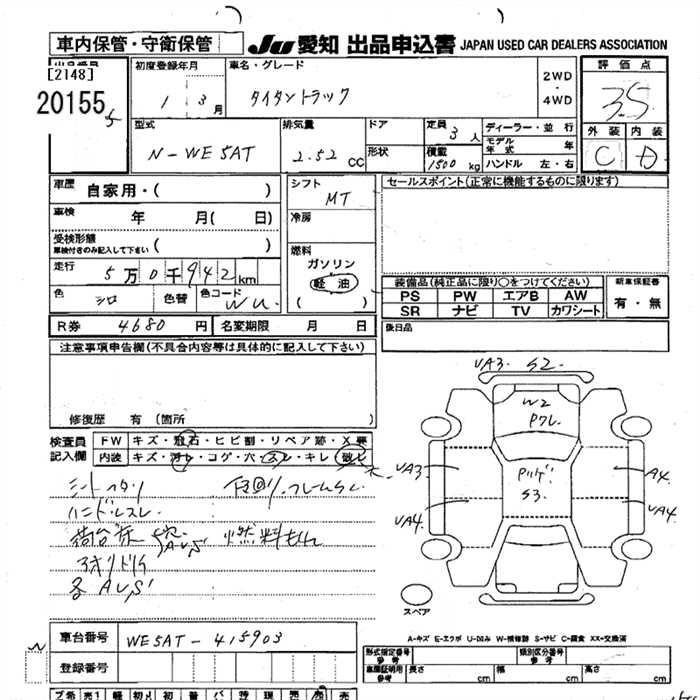 車内保管・守衛保管
JU 愛知 出品申込書 JAPAN USED CAR DEALERS ASSOCIATION
[2148]
20155
初度登録年月
1 3月
車名・グレード
タイタントラック
2WD
・
4WD
評価点
3.5
外装 内装
C D
型式
N-WE5AT
排気量
2.52 CC
ドア
形状
定員 3人
積載 1500 kg
ディーラー・並行
モデル年式 年
ハンドル 左・右
車歴 自家用・( )
車検 年 月( 日)
受検形態
車検付きのみ記入して下さい ( )
走行 5万0千942km
色 シロ 色替 色コード WU
シフト
MT
冷房
燃料
ガソリン
軽油
( )
セールスポイント(正常に機能するものに限ります)
装備品(純正品に限り○をつけてください)
PS PW エアB AW
SR ナビ TV カワシート
新車保証書
有・無
R券 4680円 名変期限 月 日
後日品
注意事項申告欄(不具合内容等は具体的に記入して下さい)
修復歴 有 (箇所
検査員
記入欄
FW キズ・飛石・ヒビ割・リペア跡・X要
内装 キズ・汚レ・コゲ・穴・スレ・キレ・破レ
ハンドルスレ
下回り、フレームサビ
荷台床
各AU,S
UA3 S2
W2
UA3
S3
A4
UA4
UA4
スペア
A-キズ E-エクボ U-凹み W-補修跡 S-サビ C-腐食 XX-交換済
車台番号 WE5AT-415903
登録番号
形式指定番号
参考
類別区分番号
参考
車庫証明用
参考
長さ cm 幅 cm 高さ cm